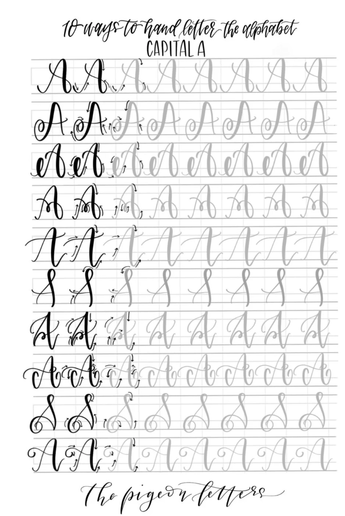 10 ways to hand letter the alphabet
CAPITAL A
A A A A A A A A
A A A A A A A A
A A A A A A A A
A A A A A A A A
A A A A A A A A
A A A A A A A A
A A A A A A A A
A A A A A A A A
A A A A A A A A
A A A A A A A A
the pigeon letters